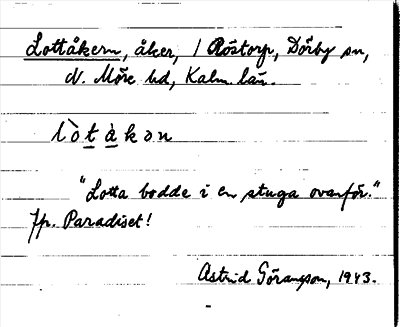 Lottåkern, åker, / Röstorp, Dörby sn,
N. Möre hd, Kalm. län.
lòtàkon
"Lotta bodde i en stuga ovanför."
Jfr. Paradiset!
Astrid Göransson, 1943.